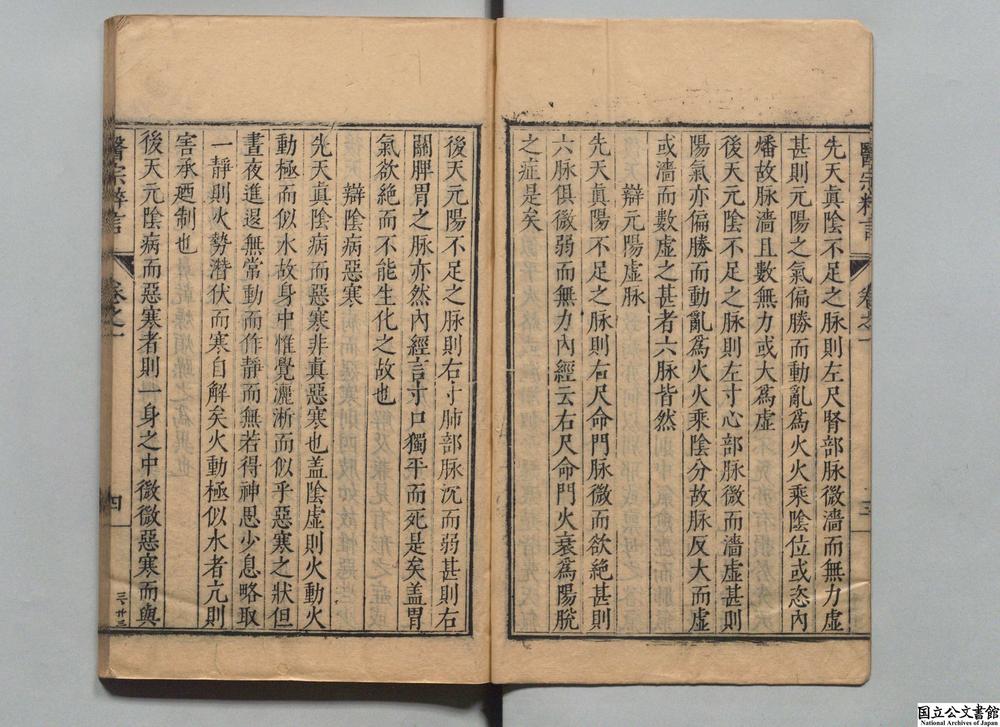 先天眞陰不足之脉則左尺腎部脉微濇而無力虛
甚則元陽之氣偏勝而動亂爲火火乘陰位或恣內
燔故脉濇且數無力或大爲虛
後天元陰不足之脉則左寸心部脉微而濇虛甚則
陽氣亦偏勝而動亂爲火火乘陰分故脉反大而虛
或濇而數虛之甚者六脉皆然
辯元陽虛脉
先天眞陽不足之脉則右尺命門脉微而欲絶甚則
六脉俱微弱而無力內經云右尺命門火衰爲陽脫
之症是矣
醫宗粹言
卷之一
三
後天元陽不足之脉則右寸肺部脉沉而弱甚則右
關脾胃之脉亦然內經言寸口獨平而死是矣盖胃
氣欲絶而不能生化之故也
辯陰病惡寒
先天眞陰病而惡寒非眞惡寒也盖陰虛則火動火
動極而似水故身中惟覺灑淅而似乎惡寒之狀但
晝夜進退無常動而作靜而無若得神思少息略取
一靜則火勢潛伏而寒自解矣火動極似水者亢則
害承廼制也
後天元陰病而惡寒者則一身之中微微惡寒而與
醫宗粹言
卷之一
四
国立公文書館
National Archives of Japan